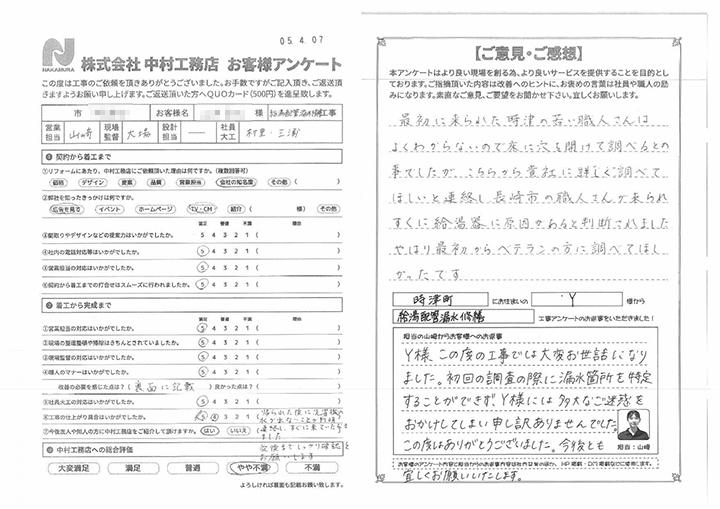 05.4.07
NAKAMURA
株式会社 中村工務店 お客様アンケート
この度は工事のご依頼を頂きありがとうございました。お手数ですがご記入頂き、ご返送頂
きますようお願い申し上げます。ご返送頂いた方へQUOカード(500円)を進呈致します。
市 お客様名 様 給湯配管漏水修繕工事
営業担当 山﨑 現場監督 大場 設計担当 ― 社員大工 村里・三浦
❶ 契約から着工まで
①リフォームにあたり、中村工務店にご依頼頂いた理由は何ですか。(複数回答可)
価格 デザイン 提案 品質 営業担当 会社の知名度 その他( )
②弊社を知ったきっかけは何ですか。
広告を見て イベント ホームページ TV・CM 紹介( 様) その他
満足 普通 不満 理由
③間取りやデザインなどの提案力はいかがでしたか。 5 4 3 2 1 ( )
④社内の電話対応等はいかがでしたか。 5 4 3 2 1 ( )
⑤営業担当の対応はいかがでしたか。 5 4 3 2 1 ( )
⑥契約から着工までの打合せはスムーズに行われましたか。 5 4 3 2 1 ( )
❷ 着工から完成まで
満足 普通 不満 理由
①営業担当の対応はいかがでしたか。 5 4 3 2 1 ( )
②現場の整理整頓や掃除はきちんとされていましたか。 5 4 3 2 1 ( )
③現場監督の対応はいかがでしたか。 5 4 3 2 1 ( )
④職人のマナーはいかがでしたか。 5 4 3 2 1 ( )
改善の必要を感じた点は?(裏面に記載)良かった点は?( )
⑤社員大工の対応はいかがでしたか。 5 4 3 2 1 ( )
⑥工事の仕上がり具合はいかがでしたか。 5 4 3 2 1 (帰られた後に洗面後の
水が出ないことが判明
⑦今後友人や知人の方に中村工務店をご紹介して頂けますか。 はい いいえ
連絡し、すぐに来て下さり
ました
最後までしっかり確認を
お願いします
❸ 中村工務店への総合評価
大変満足 満足 普通 やや不満 不満
よろしければ裏面も記載お願い致します。
【ご意見・ご感想】
本アンケートはより良い現場を創る為、より良いサービスを提供することを目的とし
ております。ご指摘頂いた内容は改善へのヒントに、お褒めの言葉は社員や職人の励
みになります。素直なご意見、ご要望をお聞かせ下さい。宜しくお願いします。
最初に来られた時津の若い職人さんは
よくわからないので床に穴を開けて調べるとの
事でしたが、こちらから貴社に詳しく調べて
ほしいと連絡し長崎市の職人さんが来られ
すぐに給湯器に原因があると判断されました
やはり最初からベテランの方に調べてほし
かったです
時津町 にお住まいの Y 様から
給湯配管漏水修繕 工事アンケートのお返事をいただきました!
担当の山﨑からお客様へのお返事
Y様 この度の工事では大変お世話になり
ました。初回の調査の際に漏水箇所を特定
することができず、Y様には多大なご迷惑を
おかけしてしまい申し訳ありませんでした。
この度はありがとうございました。今後とも
担当:山﨑
宜しくお願いいたします。